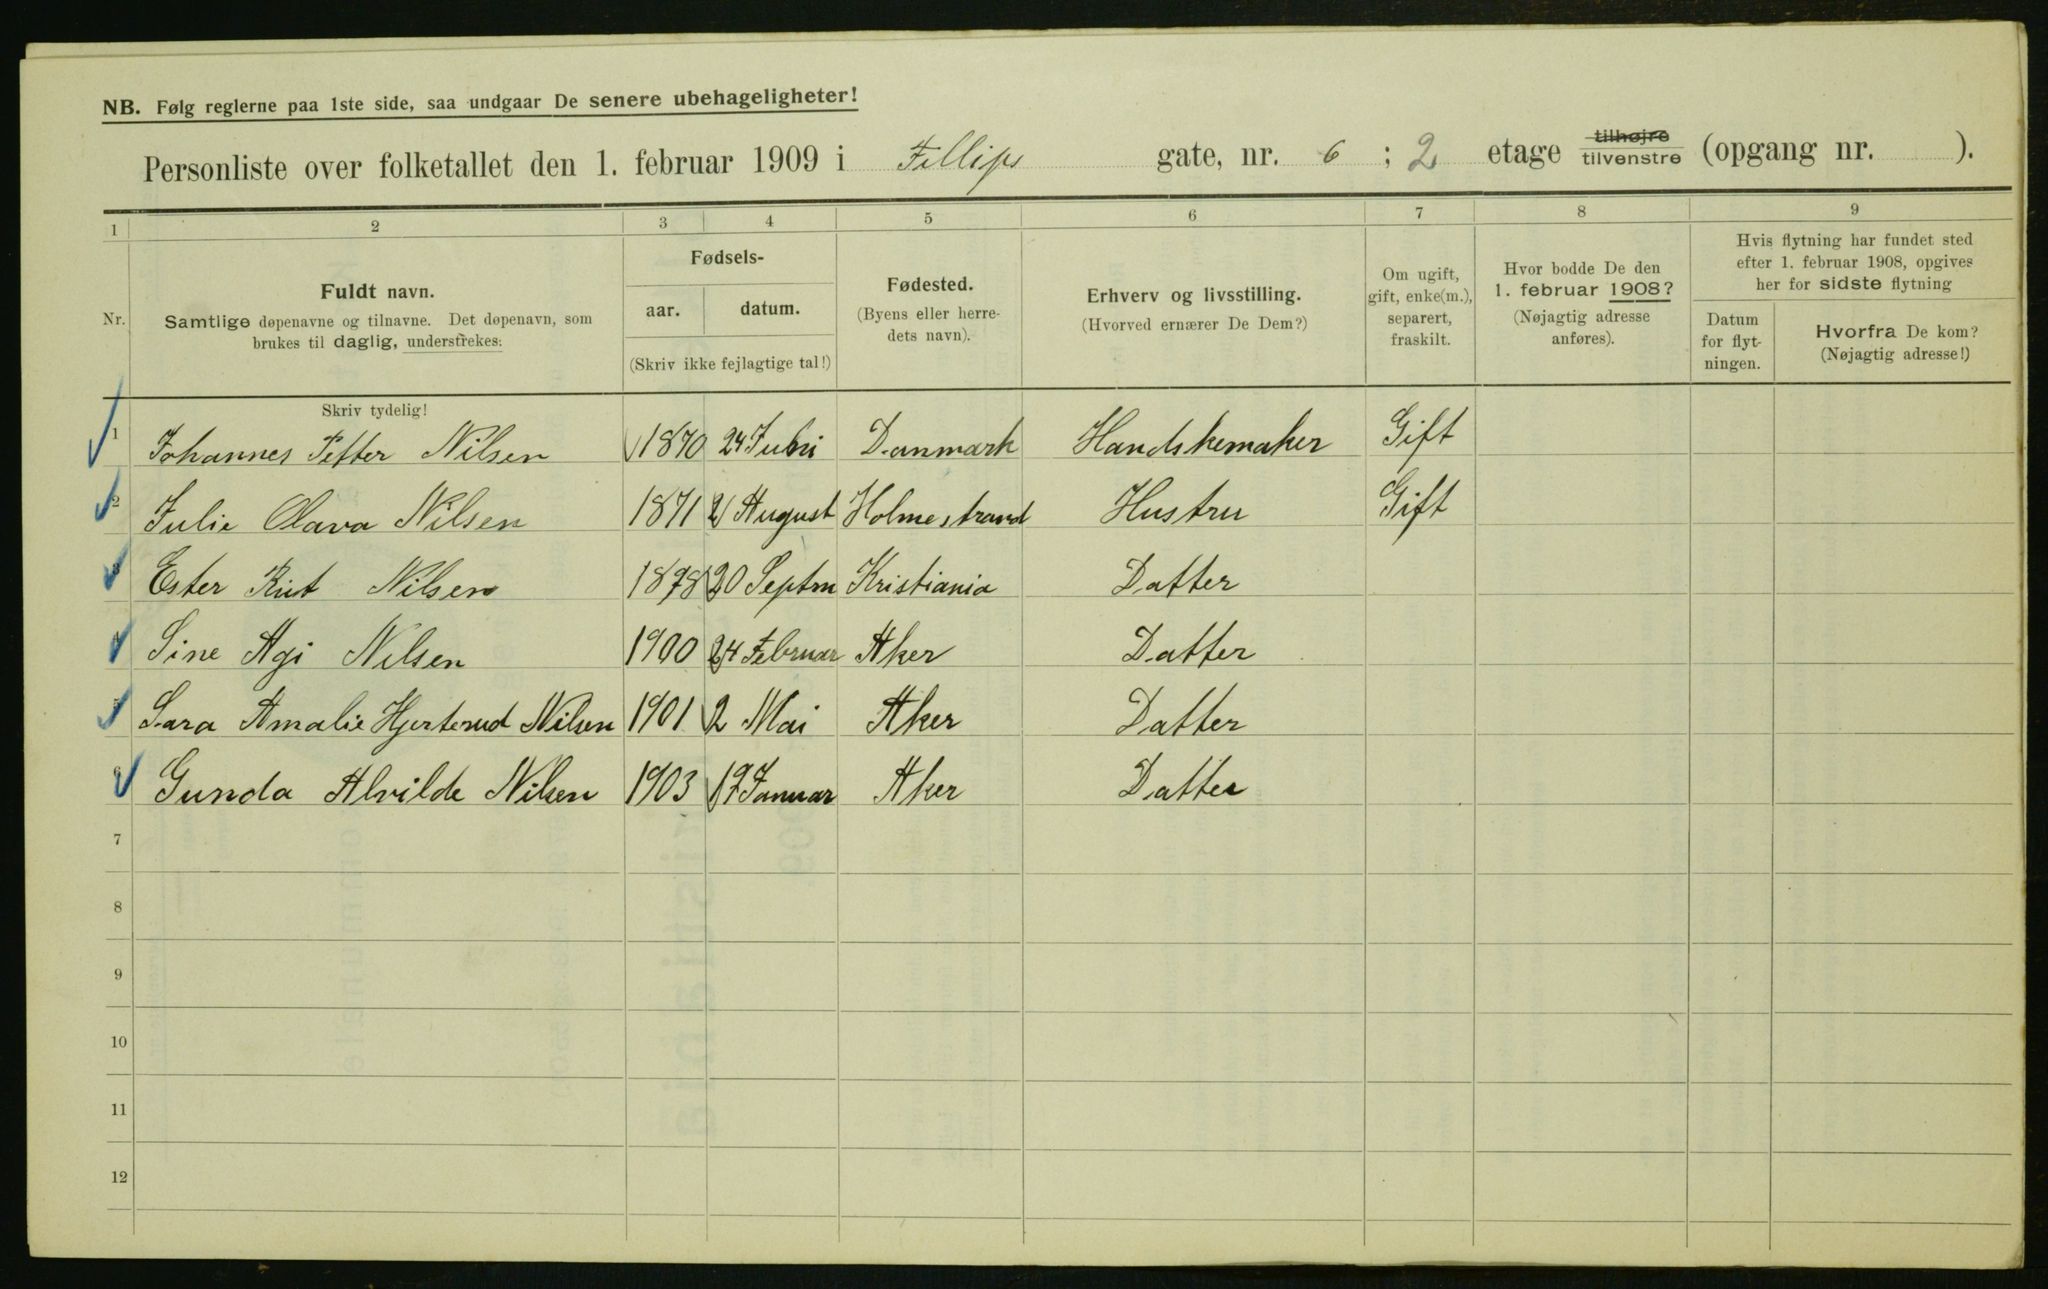 NB. Følg reglerne paa 1ste side, saa undgaar De senere ubehageligheter!
Personliste over folketallet den 1. februar 1909 i Fillips gate, nr. 6 ; 2 etage tilhøjre tilvenstre (opgang nr. ).
1 2 3 4 5 6 7 8 9
Nr.
Fuldt navn.
Samtlige døpenavne og tilnavne. Det døpenavn, som
brukes til daglig, understrekes:
Fødsels-
aar. datum.
(Skriv ikke fejlagtige tal!)
Fødested.
(Byens eller herre-
dets navn).
Erhverv og livsstilling.
(Hvorved ernærer De Dem?)
Om ugift,
gift, enke(m.),
separert,
fraskilt.
Hvor bodde De den
1. februar 1908?
(Nøjagtig adresse
anføres).
Hvis flytning har fundet sted
efter 1. februar 1908, opgives
her for sidste flytning
Datum
for flyt-
ningen.
Hvorfra De kom?
(Nøjagtig adresse!)
Skriv tydelig!
1 Johannes Petter Nilsen 1870 24 Danmark Handskemaker Gift
2 Julie Olava Nilsen 1871 August Holmestrand Hustru Gift
3 Ester Rut Nilsen 1898 20 Septm Kristiania Datter
4 Sine Agi Nilsen 1900 24 Februar Aker Datter
5 Sara Amalie Hjerterud Nilsen 1901 2 Mai Aker Datter
6 Gunda Alvilde Nilsen 1903 17 Januar Aker Datter
7
8
9
10
11
12